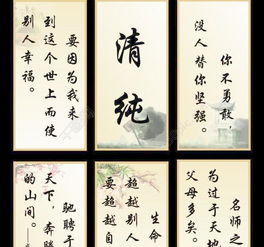 要因为我来
到这个世上而使
别人幸福。
清纯
你不勇敢，
没人替你坚强。
驰骋于
天下，奔腾
的山间。
生命
超越别人
要超越自
名师之
为过于天地
父母多矣。